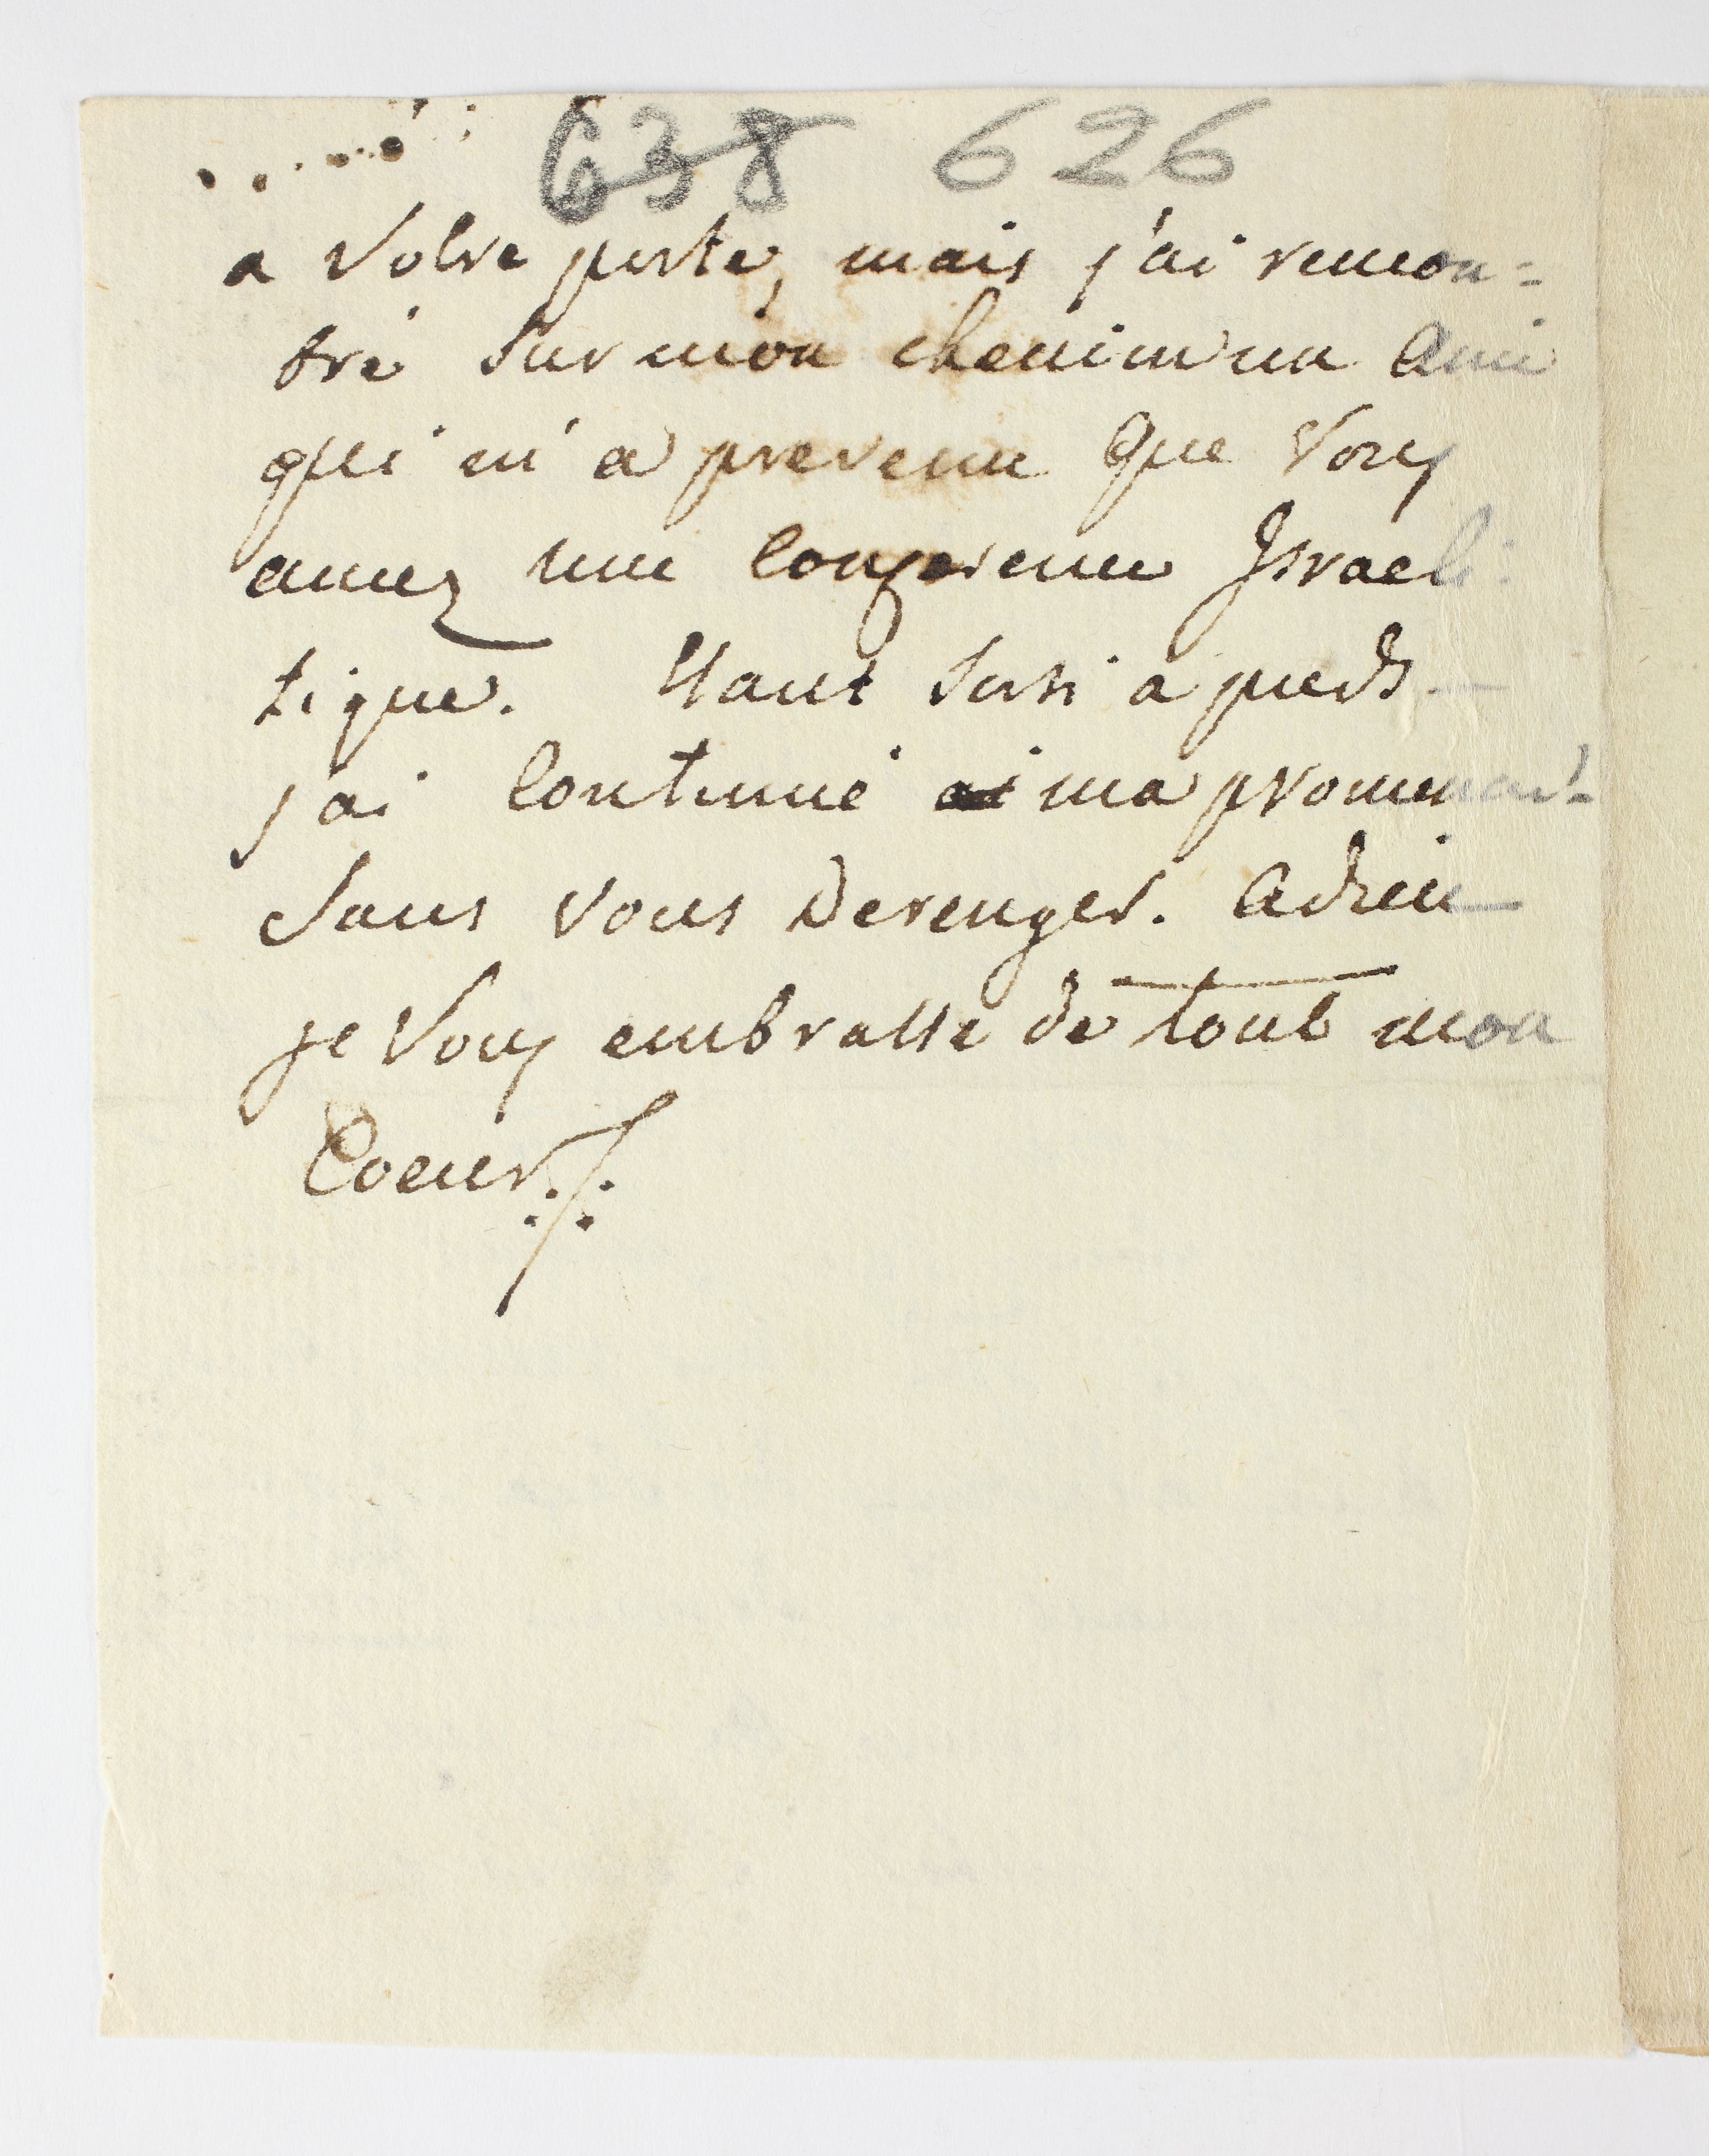 638 626
a Votre porte, mais j'ai rencon=
tré Sur mon chemin un Ami
qui m'a prevenu que Vous
aviez une Conference Israeli-
tique. Etant Sorti a pieds
j'ai Continué ma promenad-
Sans vous Derenger. Adieu
je Vous embrasse de tout mon
Coeur ./.